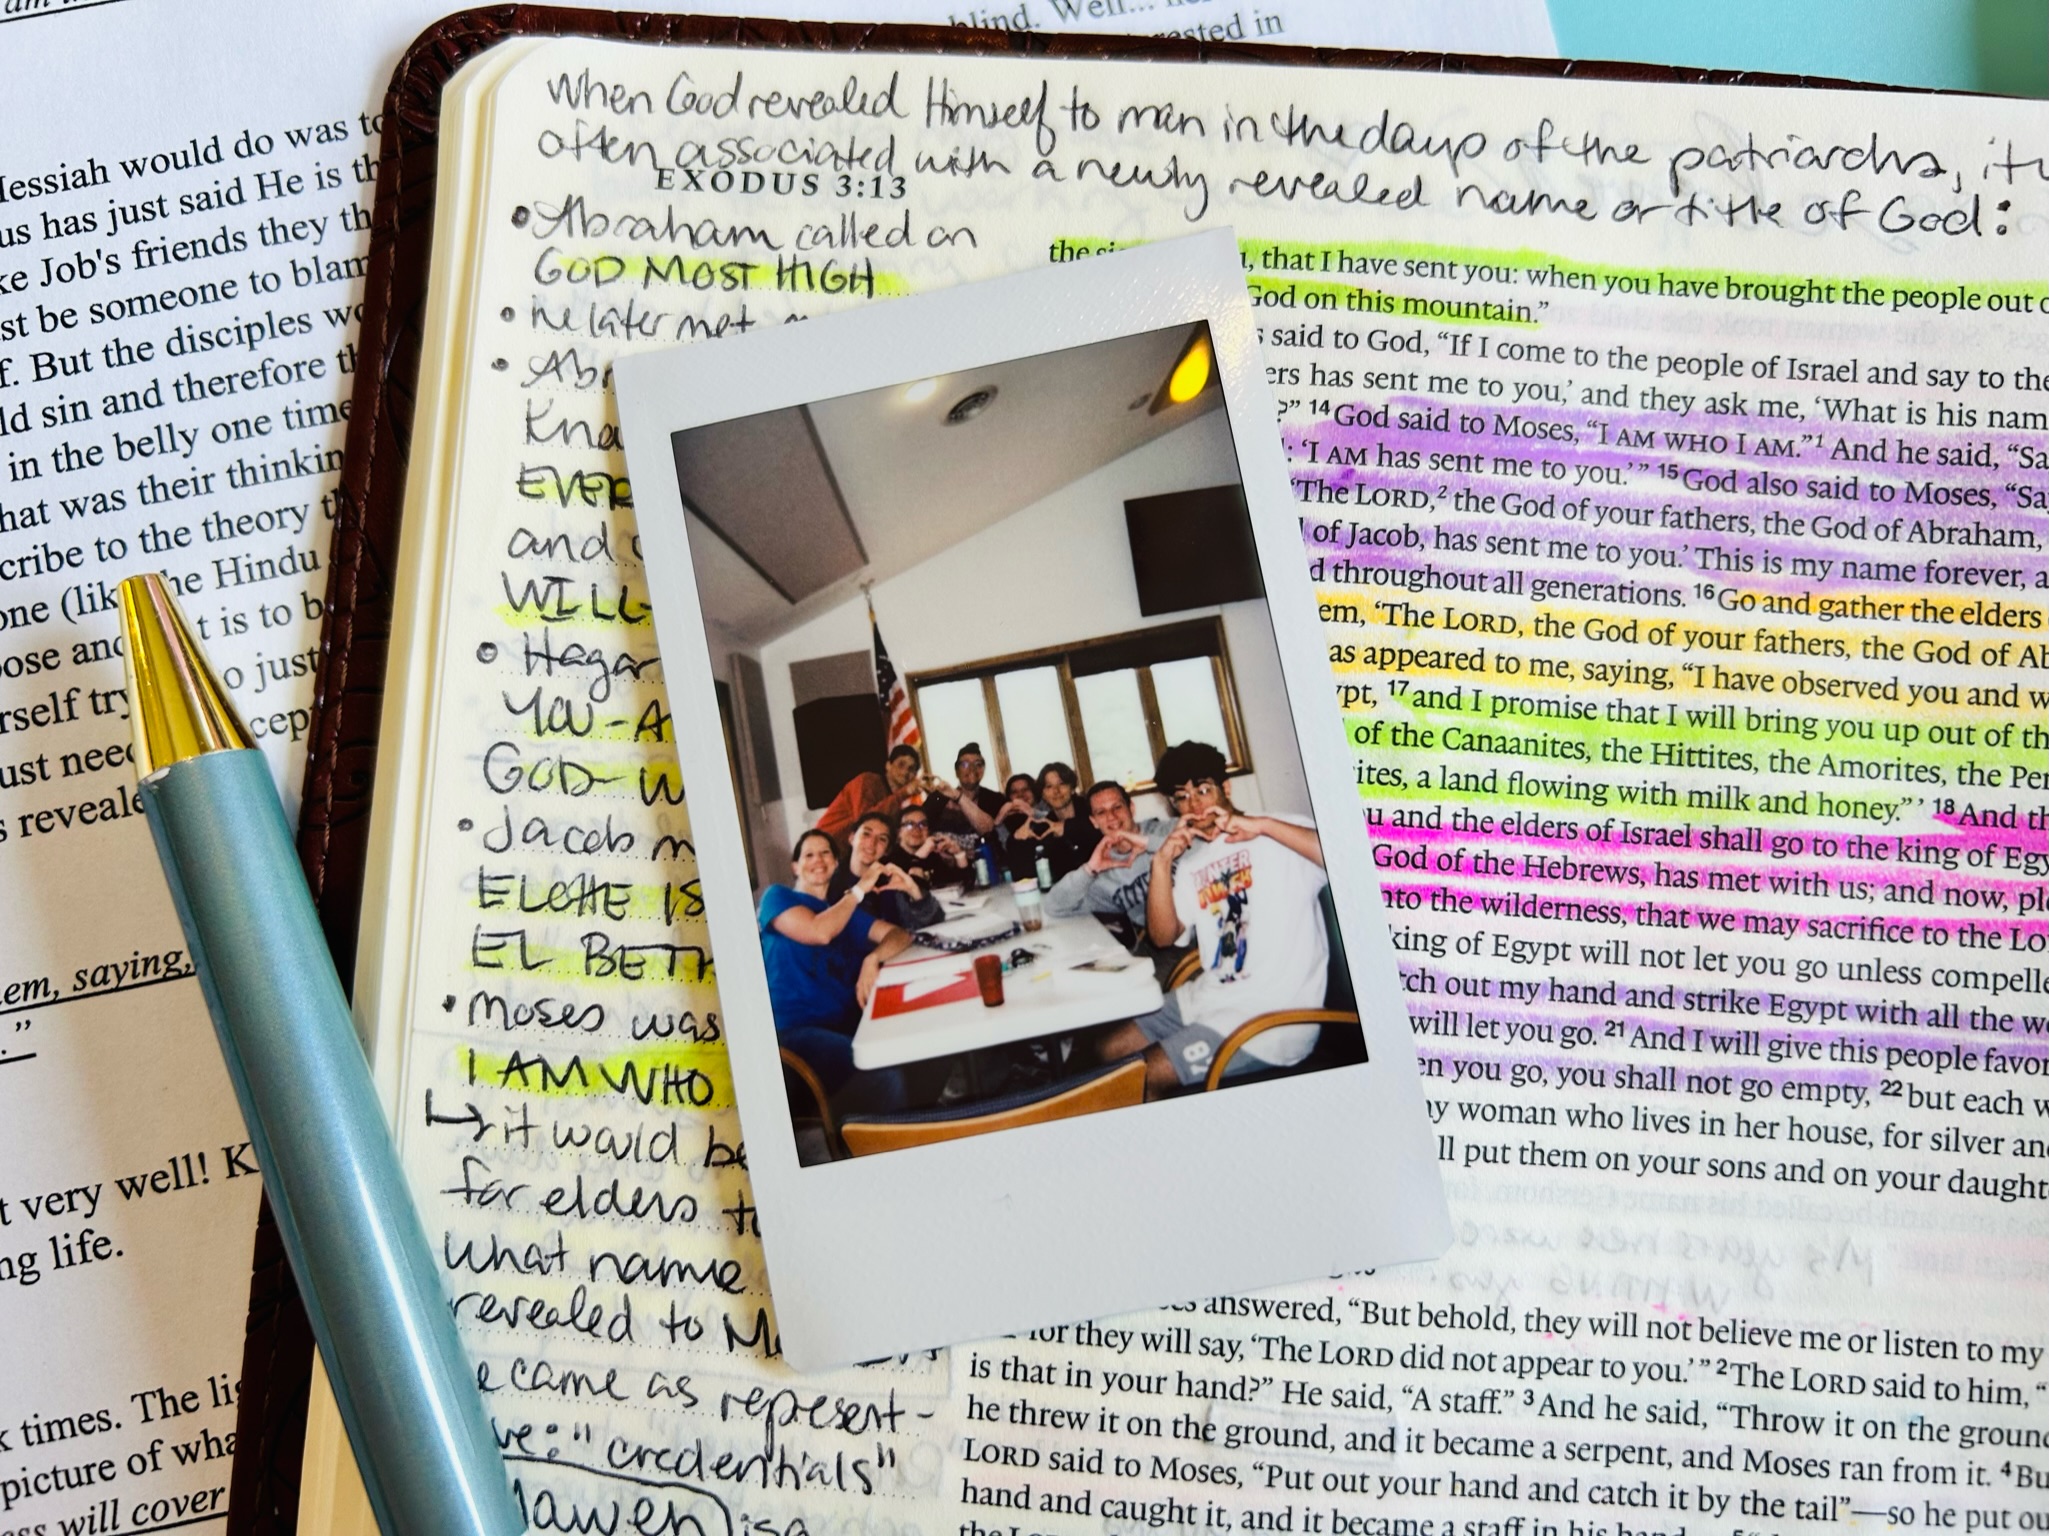 am w
blind. Well... he
rested in
Messiah would do was to
us has just said He is th
ke Job's friends they th
st be someone to blam
f. But the disciples wo
ld sin and therefore th
in the belly one time
hat was their thinkin
cribe to the theory th
one (lik he Hindu
pose and t is to b
rself try o just
ust need cep
s reveale
em, saying,
."
t very well! K
ng life.
k times. The lig
picture of wha
ss will cover
when God revealed Himself to man in the days of the patriarchs, it w
often associated with a newly revealed name or title of God:
EXODUS 3:13
• Abraham called on
GOD MOST HIGH
• he later met
• Abr
Kno
EVER
and
WILL-
• Hagar
YOU-A
GOD-W
• Jacob m
ELOHE IS
EL BETH
• Moses was
I AM WHO
↳ it would be
for elders to
what name
revealed to Mo
e came as represent-
ve: "credentials"
is a
the si , that I have sent you: when you have brought the people out o
God on this mountain.”
s said to God, “If I come to the people of Israel and say to the
ers has sent me to you,’ and they ask me, ‘What is his nam
?” 14 God said to Moses, “I AM WHO I AM.”1 And he said, “Sa
: ‘I AM has sent me to you.’” 15 God also said to Moses, “Sa
‘The LORD,2 the God of your fathers, the God of Abraham,
of Jacob, has sent me to you.’ This is my name forever, a
d throughout all generations. 16 Go and gather the elders
em, ‘The LORD, the God of your fathers, the God of Ab
as appeared to me, saying, “I have observed you and w
ypt, 17 and I promise that I will bring you up out of th
of the Canaanites, the Hittites, the Amorites, the Per
ites, a land flowing with milk and honey.”’ 18 And th
u and the elders of Israel shall go to the king of Egy
God of the Hebrews, has met with us; and now, ple
nto the wilderness, that we may sacrifice to the Lo
king of Egypt will not let you go unless compelle
tch out my hand and strike Egypt with all the wo
will let you go. 21 And I will give this people favor
en you go, you shall not go empty, 22 but each w
ny woman who lives in her house, for silver and
ll put them on your sons and on your daught
answered, “But behold, they will not believe me or listen to my
for they will say, ‘The LORD did not appear to you.’” 2 The LORD said to him, “
is that in your hand?” He said, “A staff.” 3 And he said, “Throw it on the ground
he threw it on the ground, and it became a serpent, and Moses ran from it. 4 Bu
LORD said to Moses, “Put out your hand and catch it by the tail”—so he put ou
hand and caught it, and it became a staff in his hand